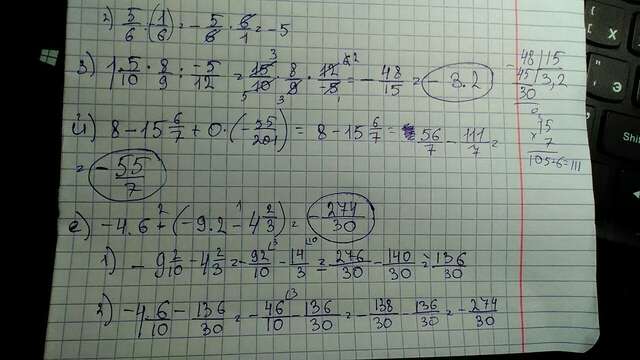 2) 5/6 · (1/6) = - 5/6 · 6/1 = -5
3) 1 5/10 · 8/9 : -5/12 = 15/10 · 8/9 · 12/-5 = - 48/15 = -3.2
48 | 15
45 | 3,2
30
й) 8 - 15 6/7 + 0 · (- 35/201) = 8 - 15 6/7 = 56/7 - 111/7 =
15
× 7
105+6=111
= - 55/7
е) -4.6 + (-9.2 - 4 2/3) = - 274/30
1) - 9 2/10 - 4 2/3 = - 92/10 - 14/3 = 276/30 - 140/30 = 136/30
2) -4.6/10 - 136/30 = - 46/10 - 136/30 = - 138/30 - 136/30 = - 274/30
Shi